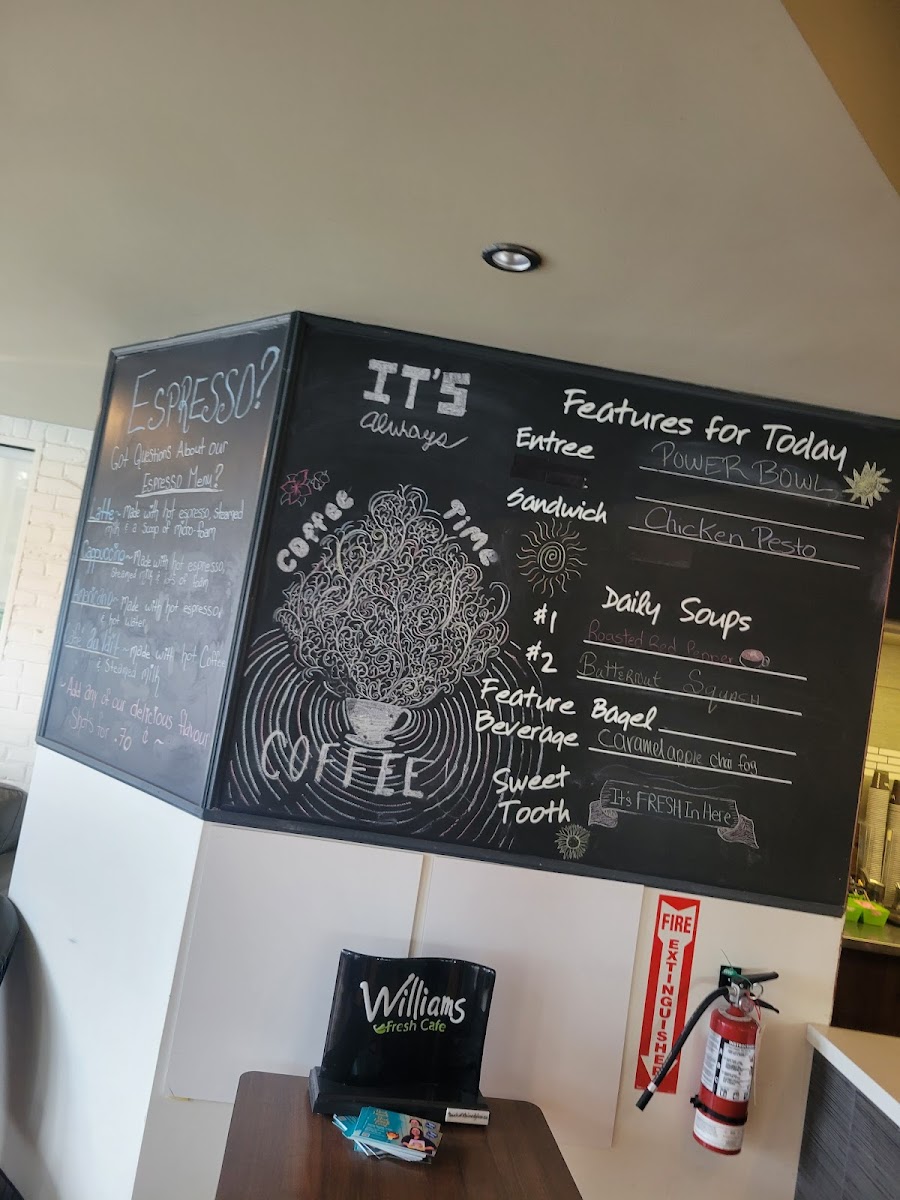 ESPRESSO?
Got Questions About our
Espresso Menu?
Latte ~ Made with hot espresso, Steamed
milk & a Scoop of micro-foam
Cappuccino ~ Made with hot espresso,
Steamed milk & lots of foam
Americano ~ Made with hot espresso
& hot water
made with hot Coffee
& Steamed milk
~ Add any of our delicious flavour
Shots for .70 ¢ ~
IT'S
always
COFFEE TIME
COFFEE
Features for Today
Entree POWER BOWL
Sandwich Chicken Pesto
Daily Soups
#1 Roasted Red Pepper
#2 Butternut Squash
Feature Bagel
Beverage Caramel apple chai fog
Sweet Tooth It's FRESH In Here
Williams
Fresh Cafe
FIRE
EXTINGUISHER